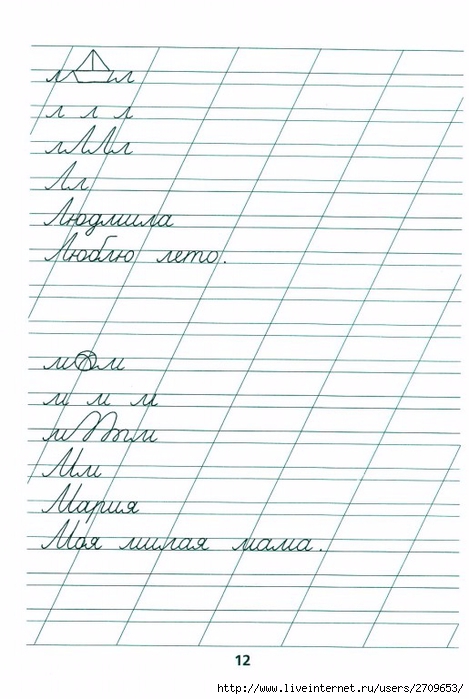 л л
л л л
лЛЛл
Лл
Людмила
Люблю лето.
м м
м м м
мМмм
Мм
Мария
Моя милая мама.
12
http://www.liveinternet.ru/users/2709653/